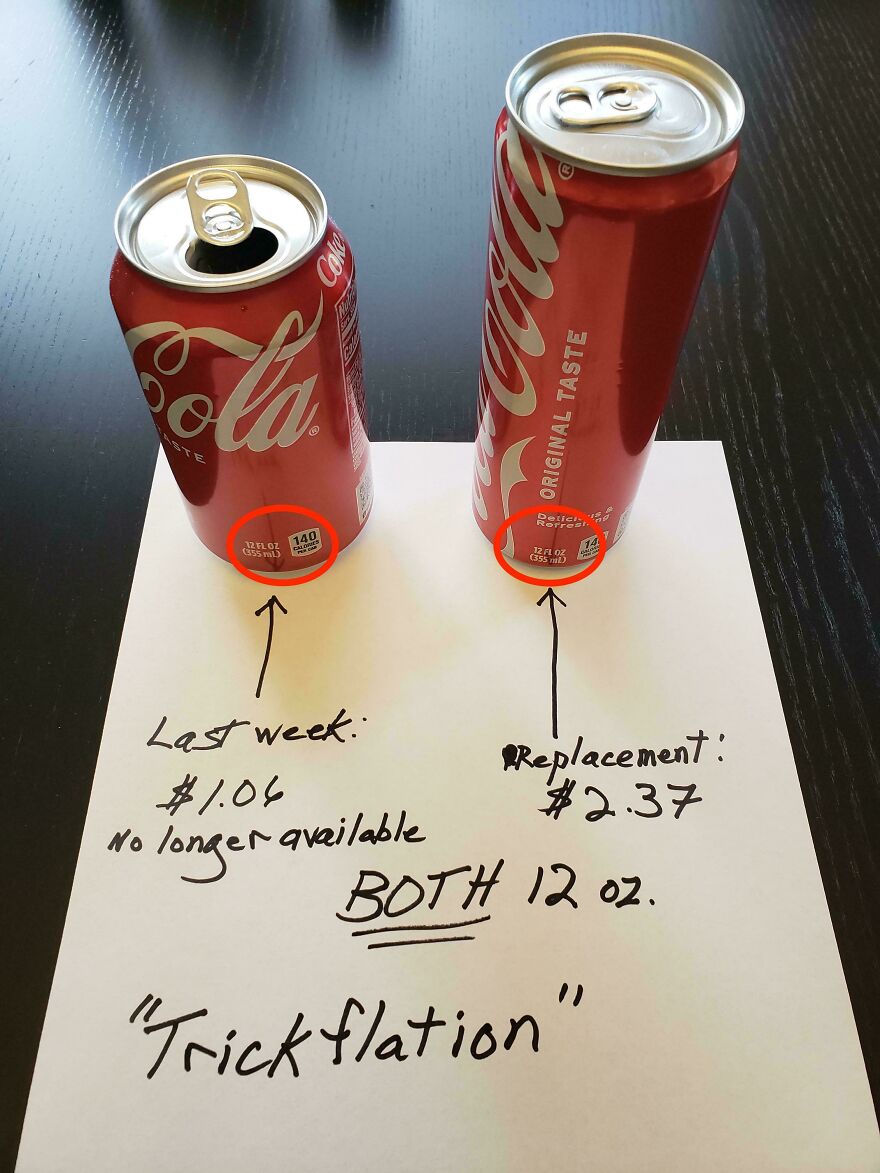 Coke
Cola
®
ASTE
12 FL OZ
(355 mL)
140
CALORIES
PER CAN
Cola
®
ORIGINAL TASTE
Delicious &
Refreshing
12 FL OZ
(355 mL)
14
CALORIES
PER CAN
Last week:
$1.06
No longer available
Replacement:
$2.37
BOTH 12 oz.
"Trickflation"